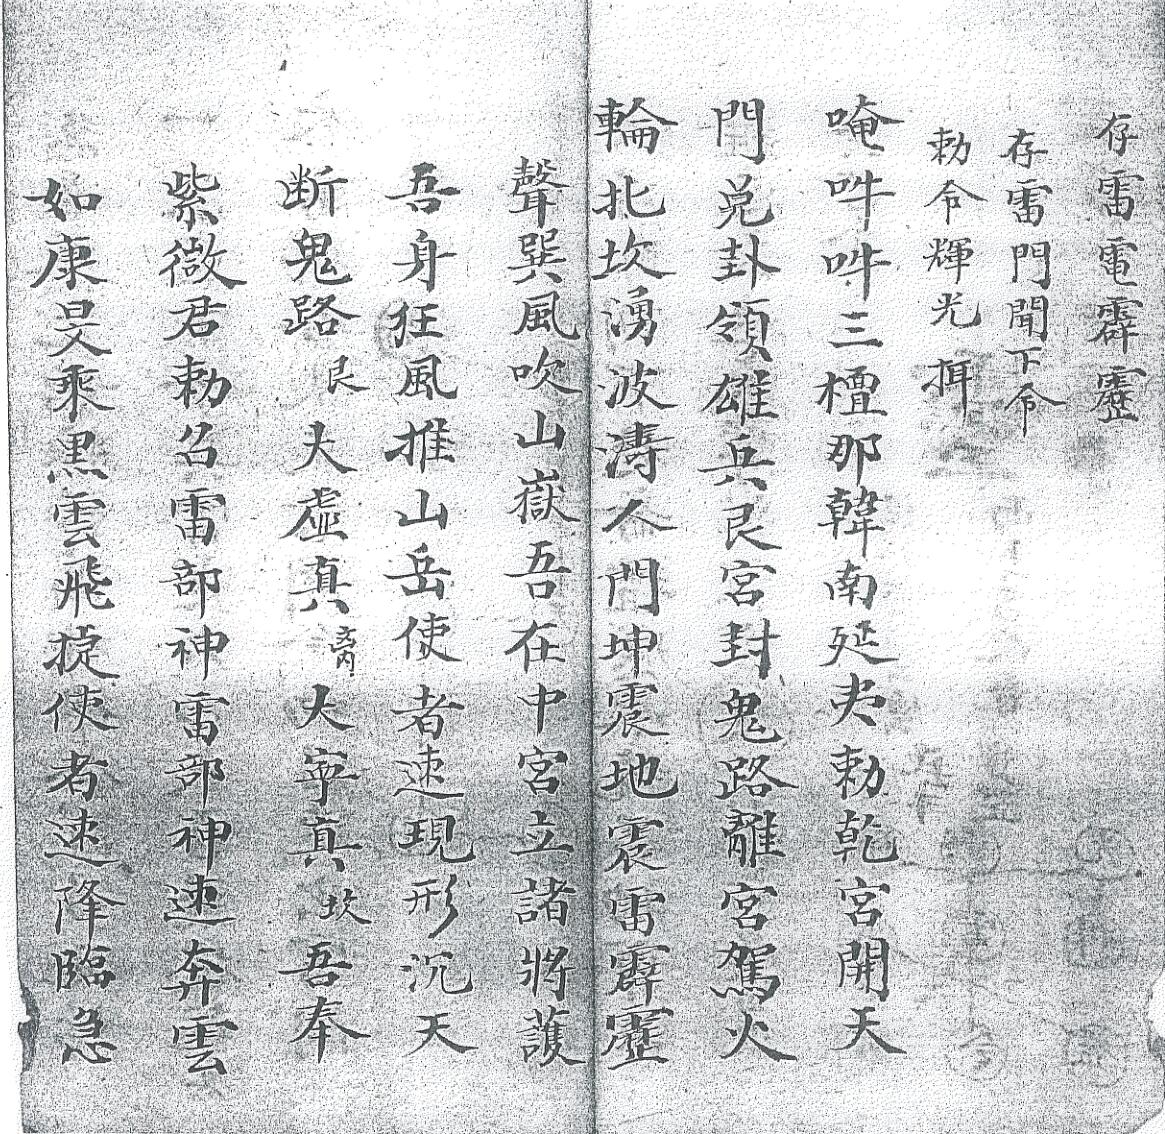 存雷電霹靂
存雷門聞下令
勅令輝光揖
唵吽吽三檀那韓南延夬勅乾宮開天
門兌卦領雄兵艮宮封鬼路離宮駕火
輪北坎湧波濤人門坤震地震雷霹靂
聲巽風吹山嶽吾在中宮立諸將護
吾身狂風推山岳使者速現形沉天
断鬼路艮大虛真离大寧真坎吾奉
紫微君勅召雷部神雷部神速奔雲
如康旻乘黑雲飛捷使者速降臨急